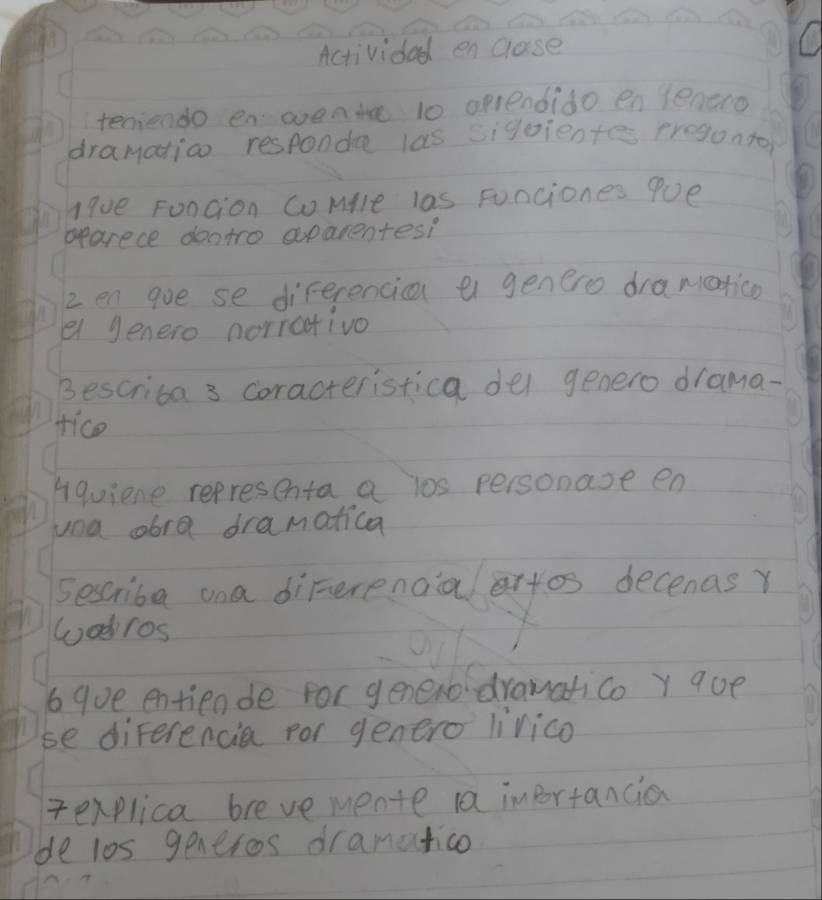 Actividad en clase
teniendo en cuenta lo aprendido en genero
dramatico responda las siguientes preguntas
1 que funcion cumple las funciones que
aparece dentro aparentesi
2 en que se diferencia el genero dramatico
el genero norrativo
3 escriba 3 caracteristica del genero drama-
tico
4 quiene representa a los personaje en
una obra dramatica
5 escriba una diferencia artos decenas y
cuadros
6 que entiende por genero dramatico y que
se diferencia por genero lirico
7 explica breve mente la importancia
de los generos dramatico